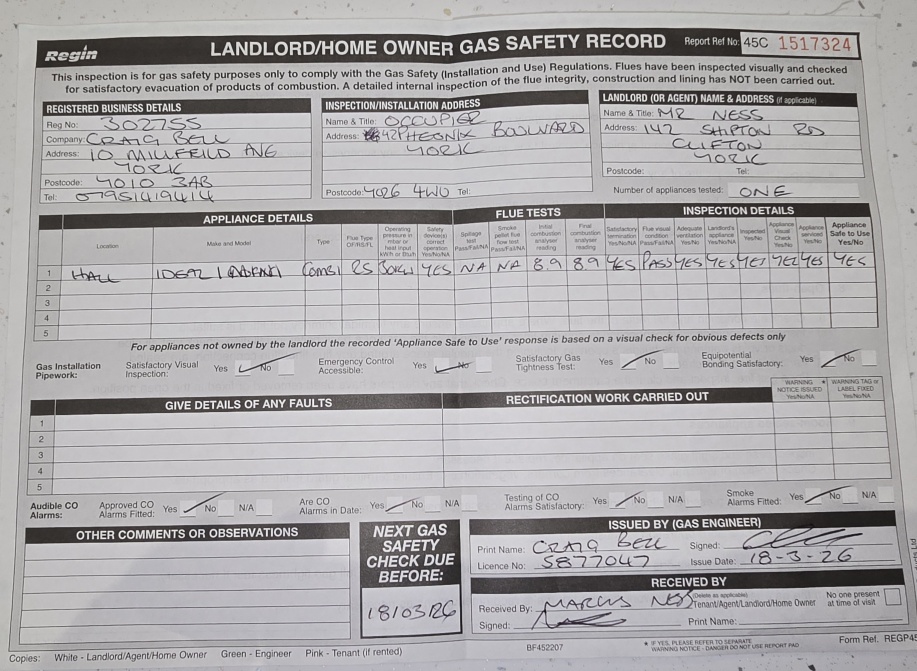 Regin
LANDLORD/HOME OWNER GAS SAFETY RECORD
Report Ref No: 45C 1517324
This inspection is for gas safety purposes only to comply with the Gas Safety (Installation and Use) Regulations. Flues have been inspected visually and checked
for satisfactory evacuation of products of combustion. A detailed internal inspection of the flue integrity, construction and lining has NOT been carried out.
REGISTERED BUSINESS DETAILS
Reg No: 302755
Company: CRAIG BELL
Address: 10 MILLFEILD AVE
YORK
Postcode: YO10 3AB
Tel: 07951419414
INSPECTION/INSTALLATION ADDRESS
Name & Title: OCCUPIER
Address: 42 PHEONIX BOULVARD
YORK
Postcode: YO26 4WU Tel:
LANDLORD (OR AGENT) NAME & ADDRESS (if applicable)
Name & Title: MR NESS
Address: 142 SHIPTON RD
CLIFTON
YORK
Postcode: Tel:
Number of appliances tested: ONE
APPLIANCE DETAILS FLUE TESTS INSPECTION DETAILS
Location
Make and Model
Type
Flue Type OF/RS/FL
Operating pressure in mbar or heat input kW/h or Btu/h
Safety device(s) correct operation Yes/No/NA
Spillage test Pass/Fail/NA
Smoke pellet flue flow test Pass/Fail/NA
Initial combustion analyser reading
Final combustion analyser reading
Satisfactory termination Yes/No/NA
Flue visual condition Pass/Fail/NA
Adequate ventilation Yes/No
Landlord's appliance Yes/No/NA
Inspected Yes/No
Appliance Visual Check Yes/No
Appliance serviced Yes/No
Appliance Safe to Use Yes/No
1 HALL IDEAL COMBI RS 30KW YES NA NA 8.9 8.9 YES PASS YES YES YES YES YES YES
2
3
4
5
For appliances not owned by the landlord the recorded 'Appliance Safe to Use' response is based on a visual check for obvious defects only
Gas Installation Pipework: Satisfactory Visual Inspection: Yes No Emergency Control Accessible: Yes No Satisfactory Gas Tightness Test: Yes No Equipotential Bonding Satisfactory: Yes No
GIVE DETAILS OF ANY FAULTS RECTIFICATION WORK CARRIED OUT
WARNING NOTICE ISSUED Yes/No/NA
WARNING TAG or LABEL FIXED Yes/No/NA
1
2
3
4
5
Audible CO Alarms: Approved CO Alarms Fitted: Yes No N/A Are CO Alarms in Date: Yes No N/A Testing of CO Alarms Satisfactory: Yes No N/A Smoke Alarms Fitted: Yes No N/A
OTHER COMMENTS OR OBSERVATIONS
NEXT GAS
SAFETY
CHECK DUE
BEFORE:
18/03/26
ISSUED BY (GAS ENGINEER)
Print Name: CRAIG BELL Signed:
Licence No: 5877047 Issue Date: 18-3-26
RECEIVED BY
Received By: MARCUS NESS (Delete as applicable) Tenant/Agent/Landlord/Home Owner
No one present at time of visit
Signed: Print Name:
Copies: White - Landlord/Agent/Home Owner Green - Engineer Pink - Tenant (if rented)
BF452207
* IF YES, PLEASE REFER TO SEPARATE
WARNING NOTICE - DANGER DO NOT USE REPORT PAD
Form Ref. REGP45